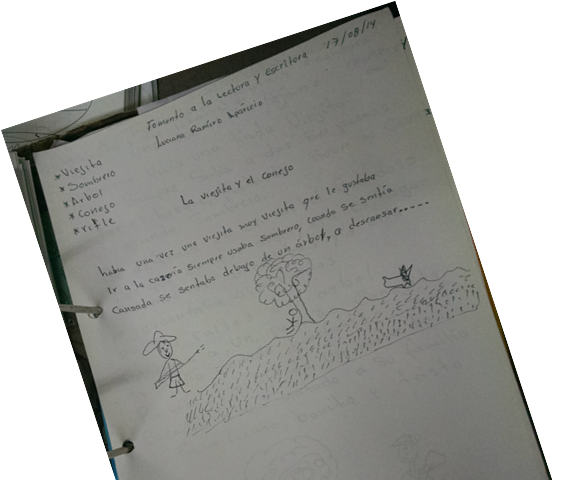 17/08/14
Fomento a la Lectora y Escritora
Luciana Ramíro Aparicio
* Viejita
* Sombrero
* Arbol
* Conejo
* rifle
La viejita y el conejo
había una vez una viejita muy viejita que le gustaba
Ir a la casería siempre usaba sombrero, cuando se sentía
Cansada se sentaba debajo de un árbol, a descansar.....